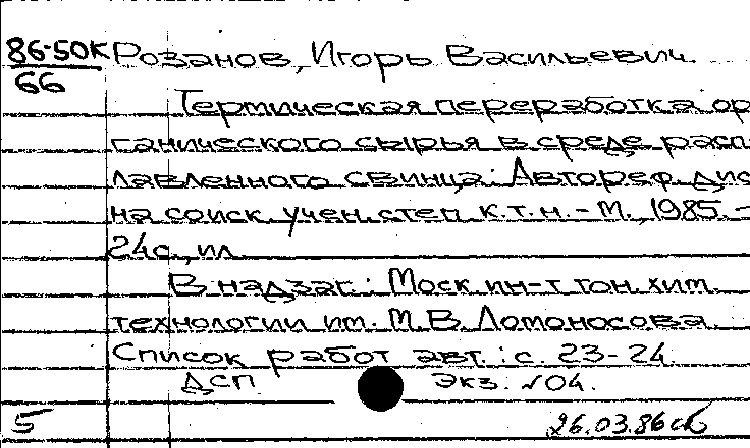 86-50К Розанов, Игорь Васильевич.
66
Термическая переработка ор
ганического сырья в среде расп
лавленного свинца: Автореф. дис
на соиск. учен. степ. к.т.н. - М., 1985. -
24с., ил.
В надзаг.: Моск. ин-т тон. хим.
технологии им. М.В. Ломоносова.
Список работ авт.: с. 23-24.
ДСП Экз. №04.
5 26.03.86